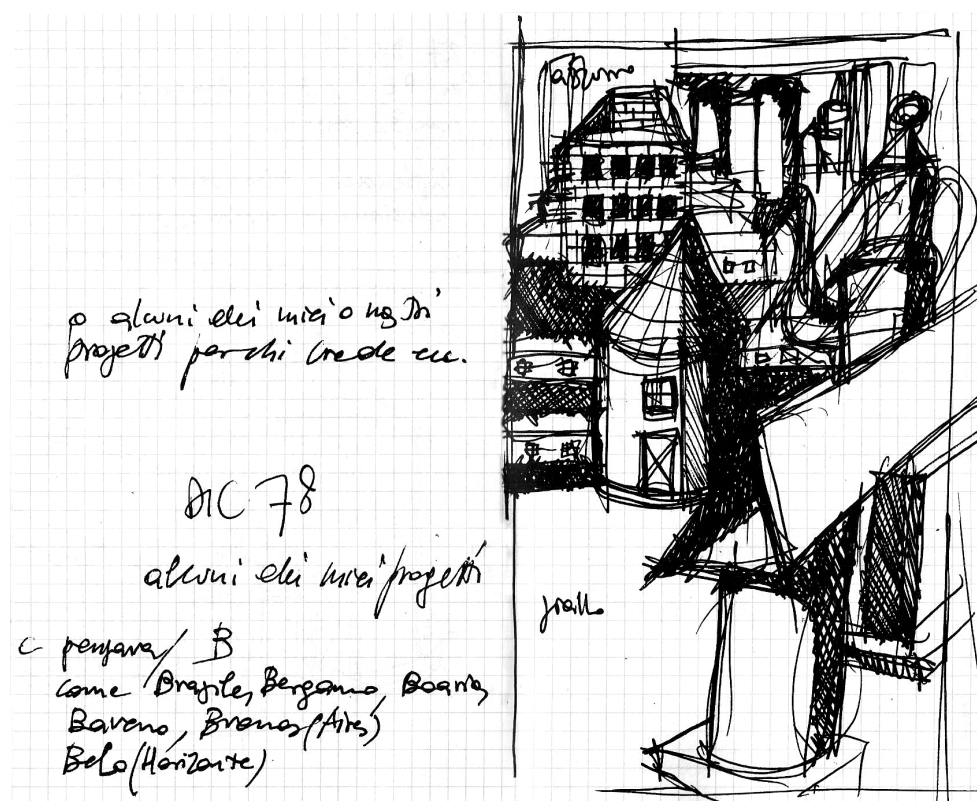 o alcuni dei miei o nostri
progetti perchi crede ecc.
DIC 78
alcuni dei miei progetti
pensava / B
come Brasile, Bergamo, Boario,
Baveno, Buenos (Aires)
Belo (Horizonte)
azzurro
giallo